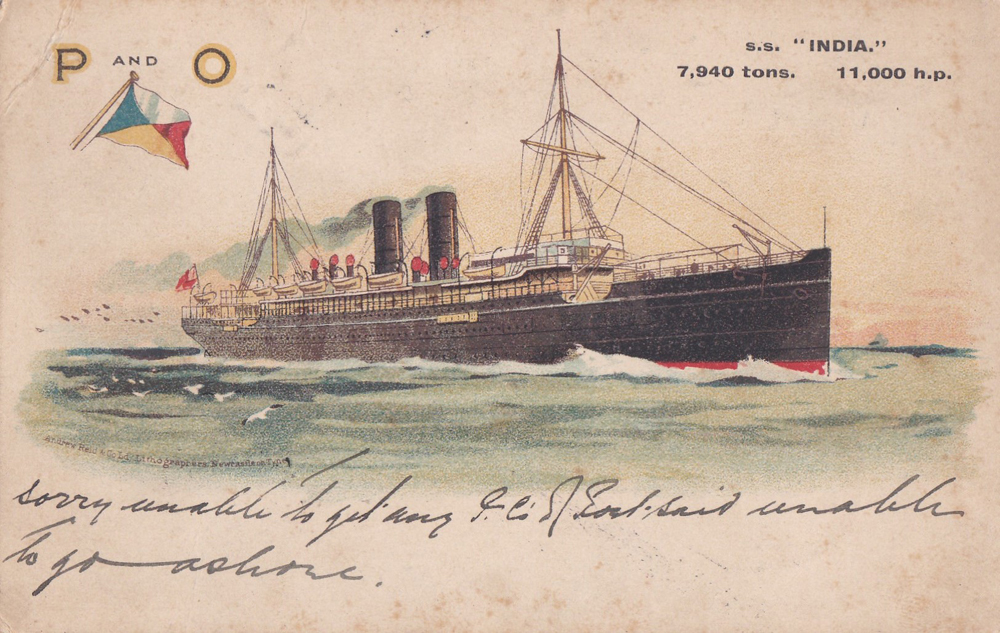 P AND O
s.s. "INDIA."
7,940 tons. 11,000 h.p.
Andrew Reid & Co. Ld. Lithographers. Newcastle on Tyne
sorry unable to get any P.C's of Port-said unable
to go ashore.